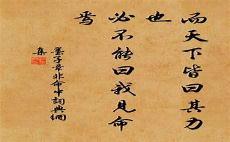 而天下皆曰其力
也
必不能曰我見命
焉
墨子章非命中詞典網
集